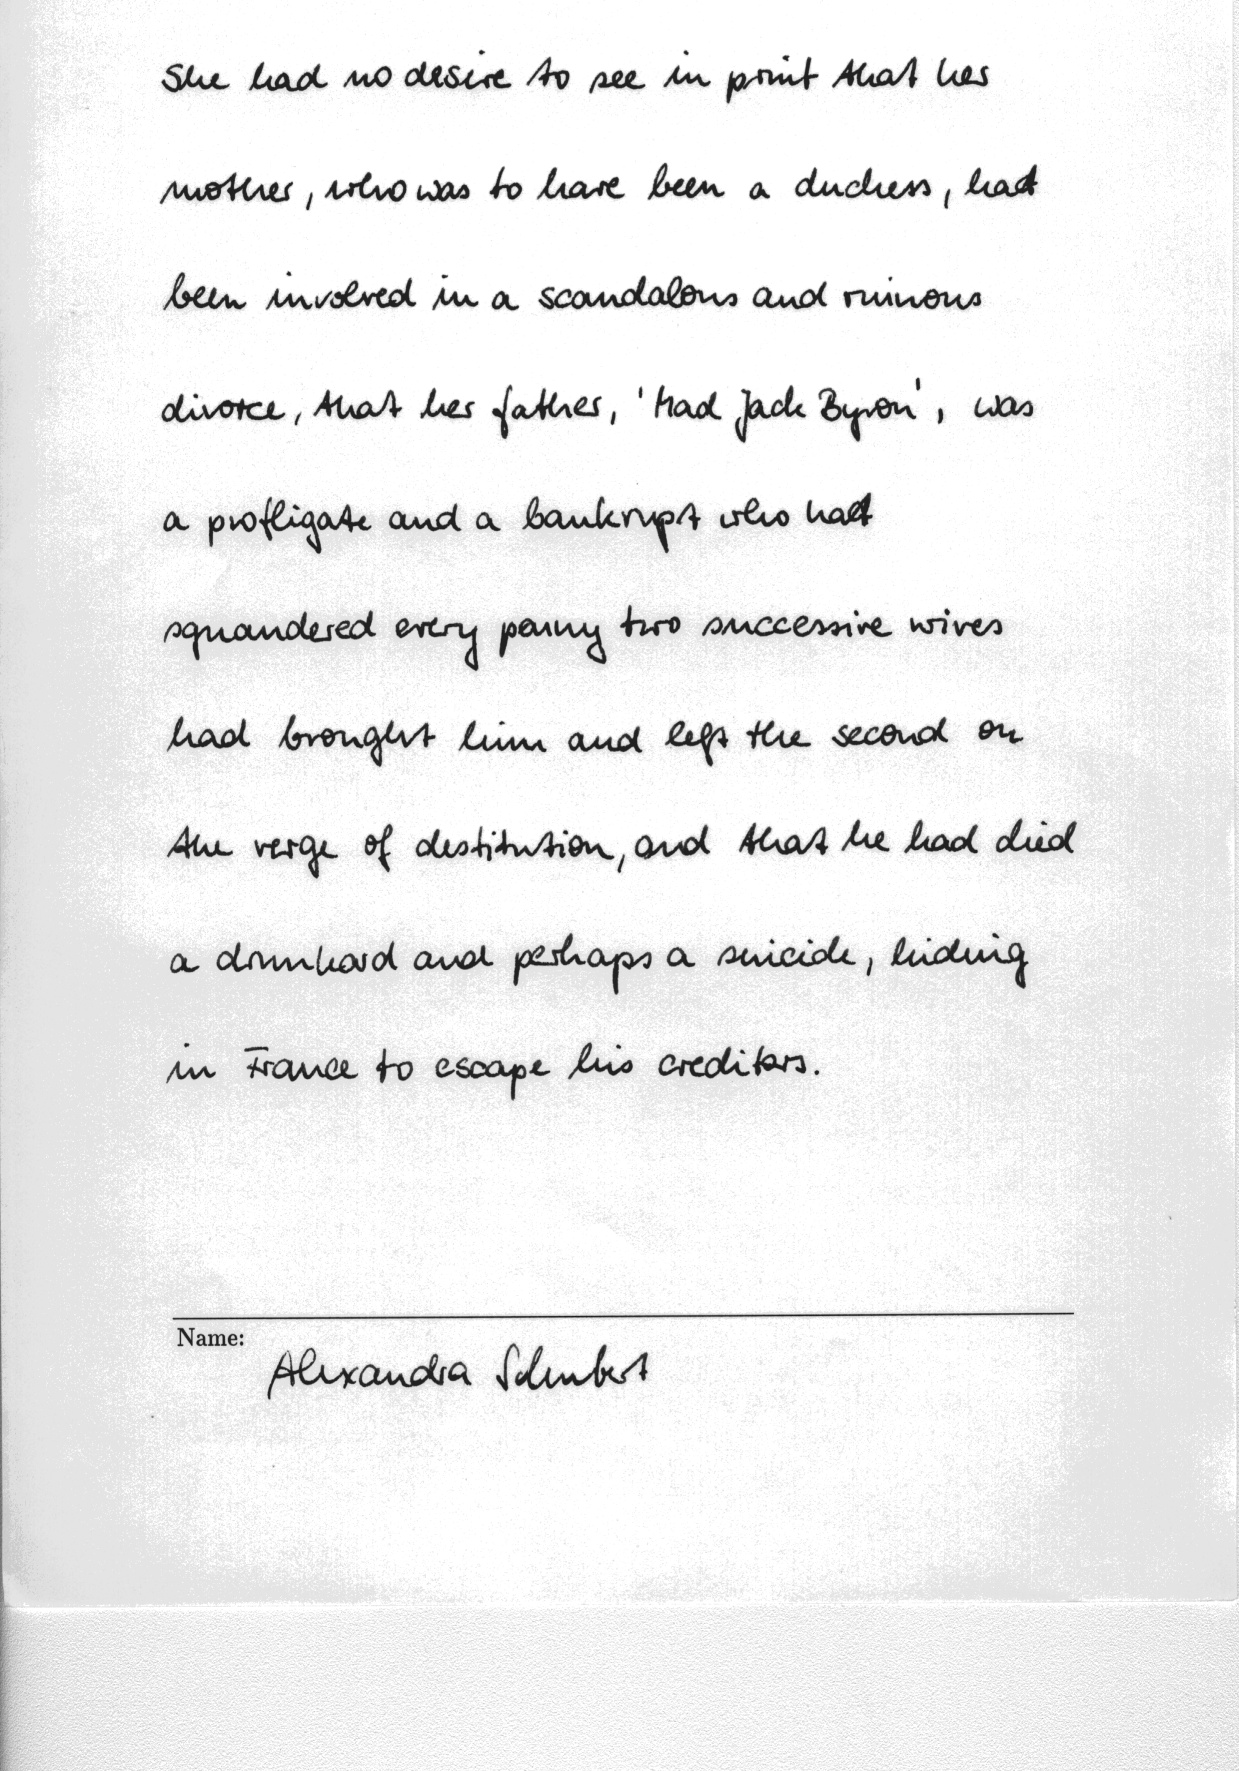 She had no desire to see in print that her
mother, who was to have been a duchess, had
been involved in a scandalous and ruinous
divorce, that her father, 'Mad Jack Byron', was
a profligate and a bankrupt who had
squandered every penny two successive wives
had brought him and left the second on
the verge of destitution, and that he had died
a drunkard and perhaps a suicide, hiding
in France to escape his creditors.
Name:
Alexandra Schubert